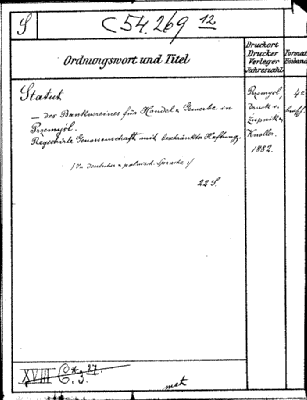 S
C 54.269 12
Ordnungswort und Titel
Druckort
Drucker
Verleger
Jahrzahl
Format
Einband
Statut
— des Bankvereines für Handel u. Gewerbe in
Przemyśl.
Registrirte Genossenschaft mit beschränkter Haftung.
/:In deutscher u. polnischer Sprache:/
22 S.
Przemyśl,
Druck v.
Knoller.
1882.
4°
XVIII